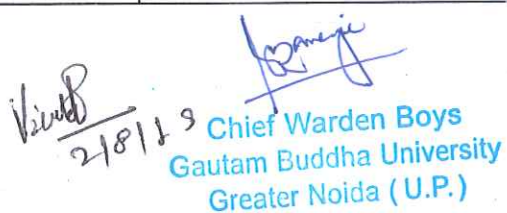 2/8/19
Chief Warden Boys
Gautam Buddha University
Greater Noida (U.P.)